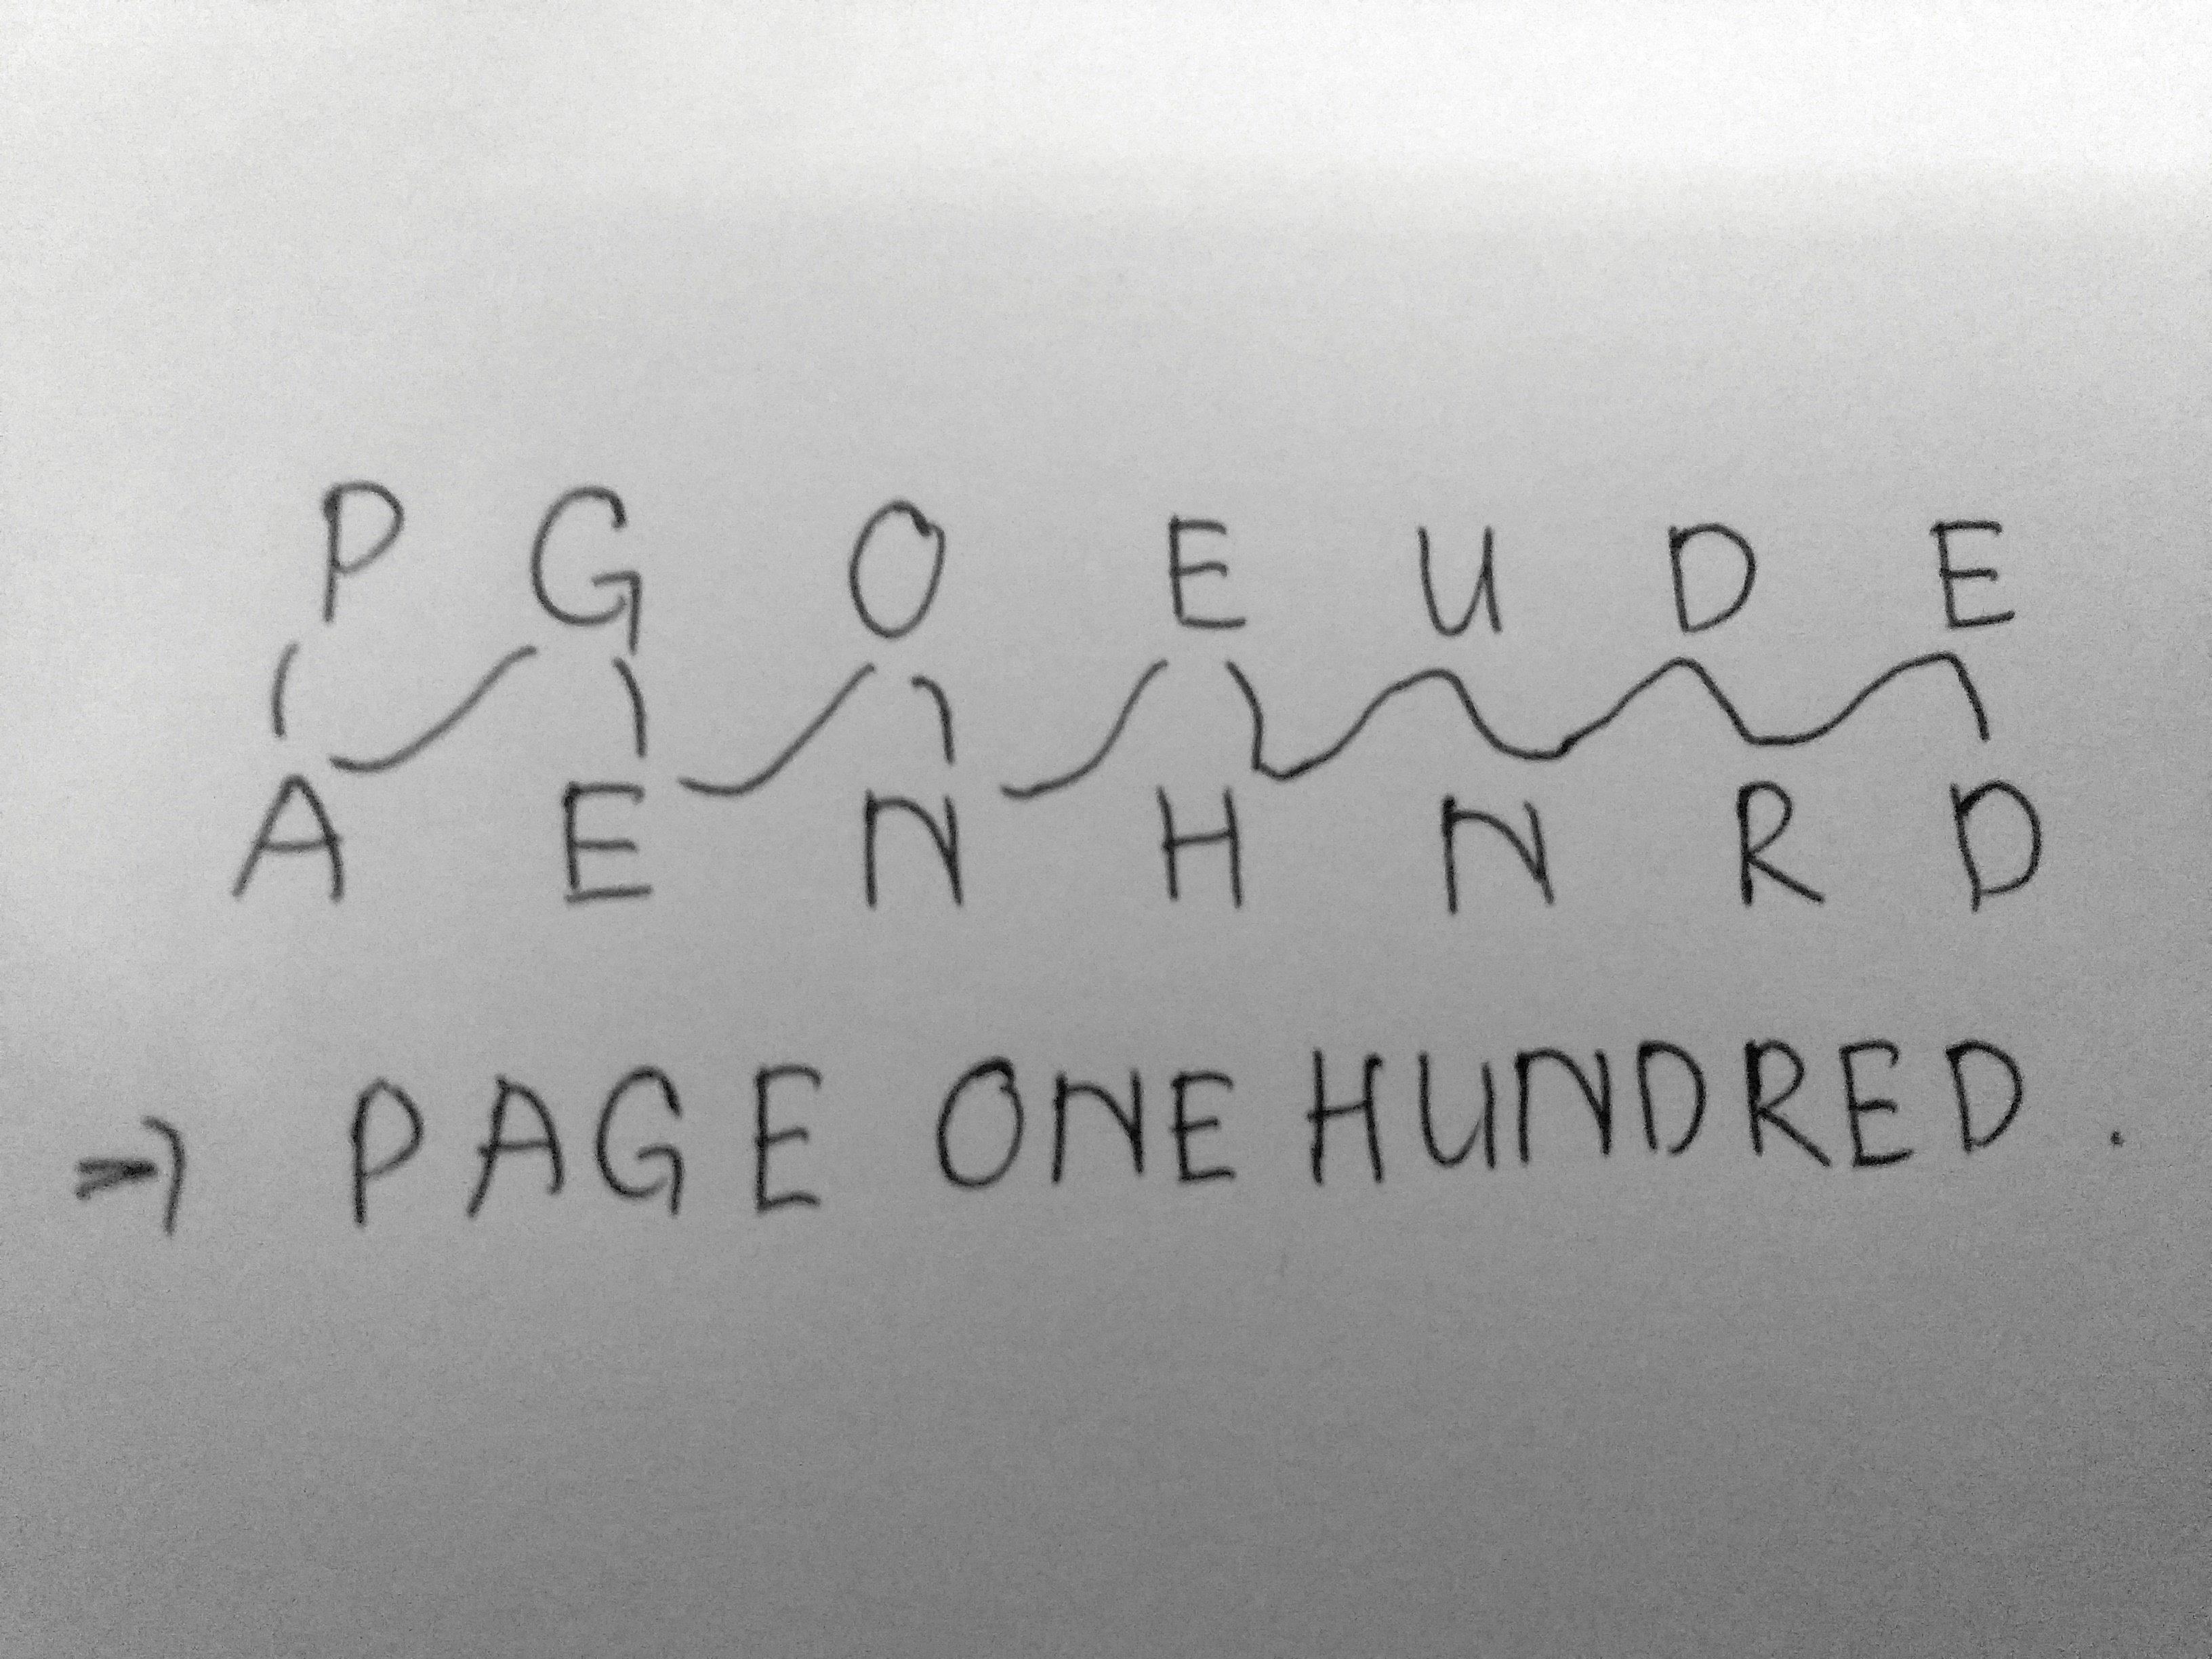 P G O E U D E
A E N H N R D
⇒ PAGE ONE HUNDRED.